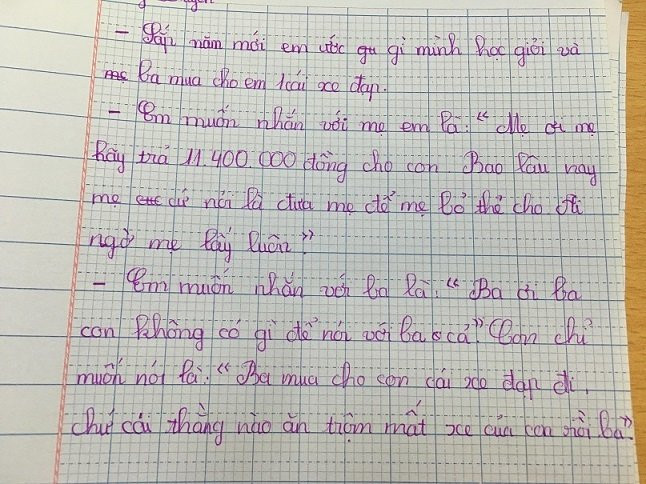 - Sắp năm mới em ước gu gì mình học giỏi và
ba mua cho em 1 cái xe đạp.
- Em muốn nhắn với mẹ em là: “Mẹ ơi mẹ
hãy trả 11.400.000 đồng cho con Bao lâu nay
mẹ cứ nói là đưa mẹ để mẹ bỏ thẻ cho ai
ngờ mẹ lấy luôn”
- Em muốn nhắn với ba là: “Ba ơi ba
con không có gì để nói với ba cả” Con chỉ
muốn nói là: “Ba mua cho con cái xe đạp đi,
chứ cái thằng nào ăn trộm mất xe của con rồi ba”